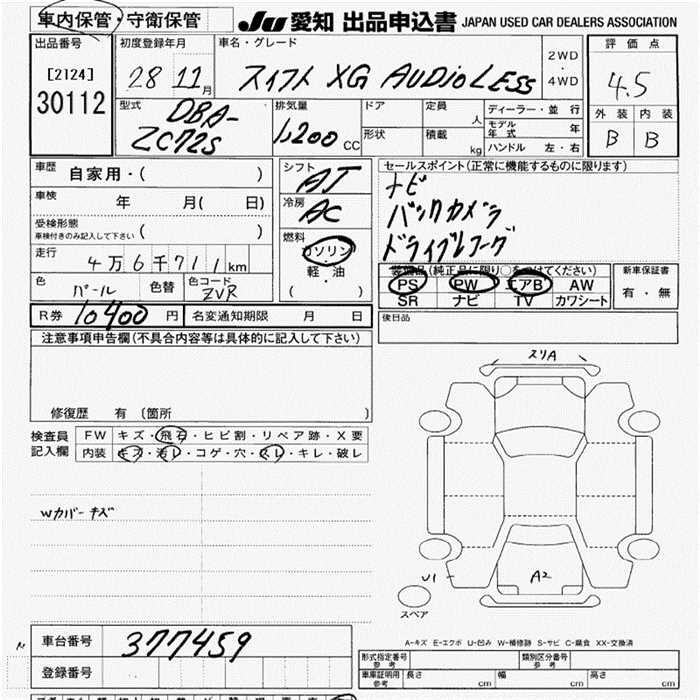 車内保管・守衛保管 JU 愛知 出品申込書 JAPAN USED CAR DEALERS ASSOCIATION
出品番号 [2124] 30112
初度登録年月 28 11月
車名・グレード スイフト XG AUDioLESS
2WD・4WD
評価点 4.5
外装 B 内装 B
型式 DBA-ZC72S
排気量 1,200 CC
ドア 形状
定員 人
積載 kg
ディーラー・並行
モデル年式 年
ハンドル 左・右
車歴 自家用・( )
車検 年 月( 日)
受検形態 車検付きのみ記入して下さい ( )
走行 4万6千711km
色 パール 色替 色コード ZVR
シフト AT
冷房 AC
燃料 ガソリン・軽・油 ( )
セールスポイント(正常に機能するものに限ります)
ナビ
バックカメラ
ドライブレコーダ
装備品(純正品に限り○をつけてください)
PS PW エアB AW
SR ナビ TV カワシート
新車保証書 有・無
R券 10400円 名変通知期限 月 日
後日品
注意事項申告欄(不具合内容等は具体的に記入して下さい)
修復歴 有 〔箇所 〕
検査員記入欄
FW キズ・飛石・ヒビ割・リペア跡・X要
内装 キズ・汚レ・コゲ・穴・スレ・キレ・破レ
Wカバーキズ
スリA
U1
A2
スペア
A-キズ E-エクボ U-凹み W-補修跡 S-サビ C-腐食 XX-交換済
車台番号 377459
登録番号
形式指定番号 参考 類別区分番号 参考
車庫証明用 参考 長さ cm 幅 cm 高さ cm